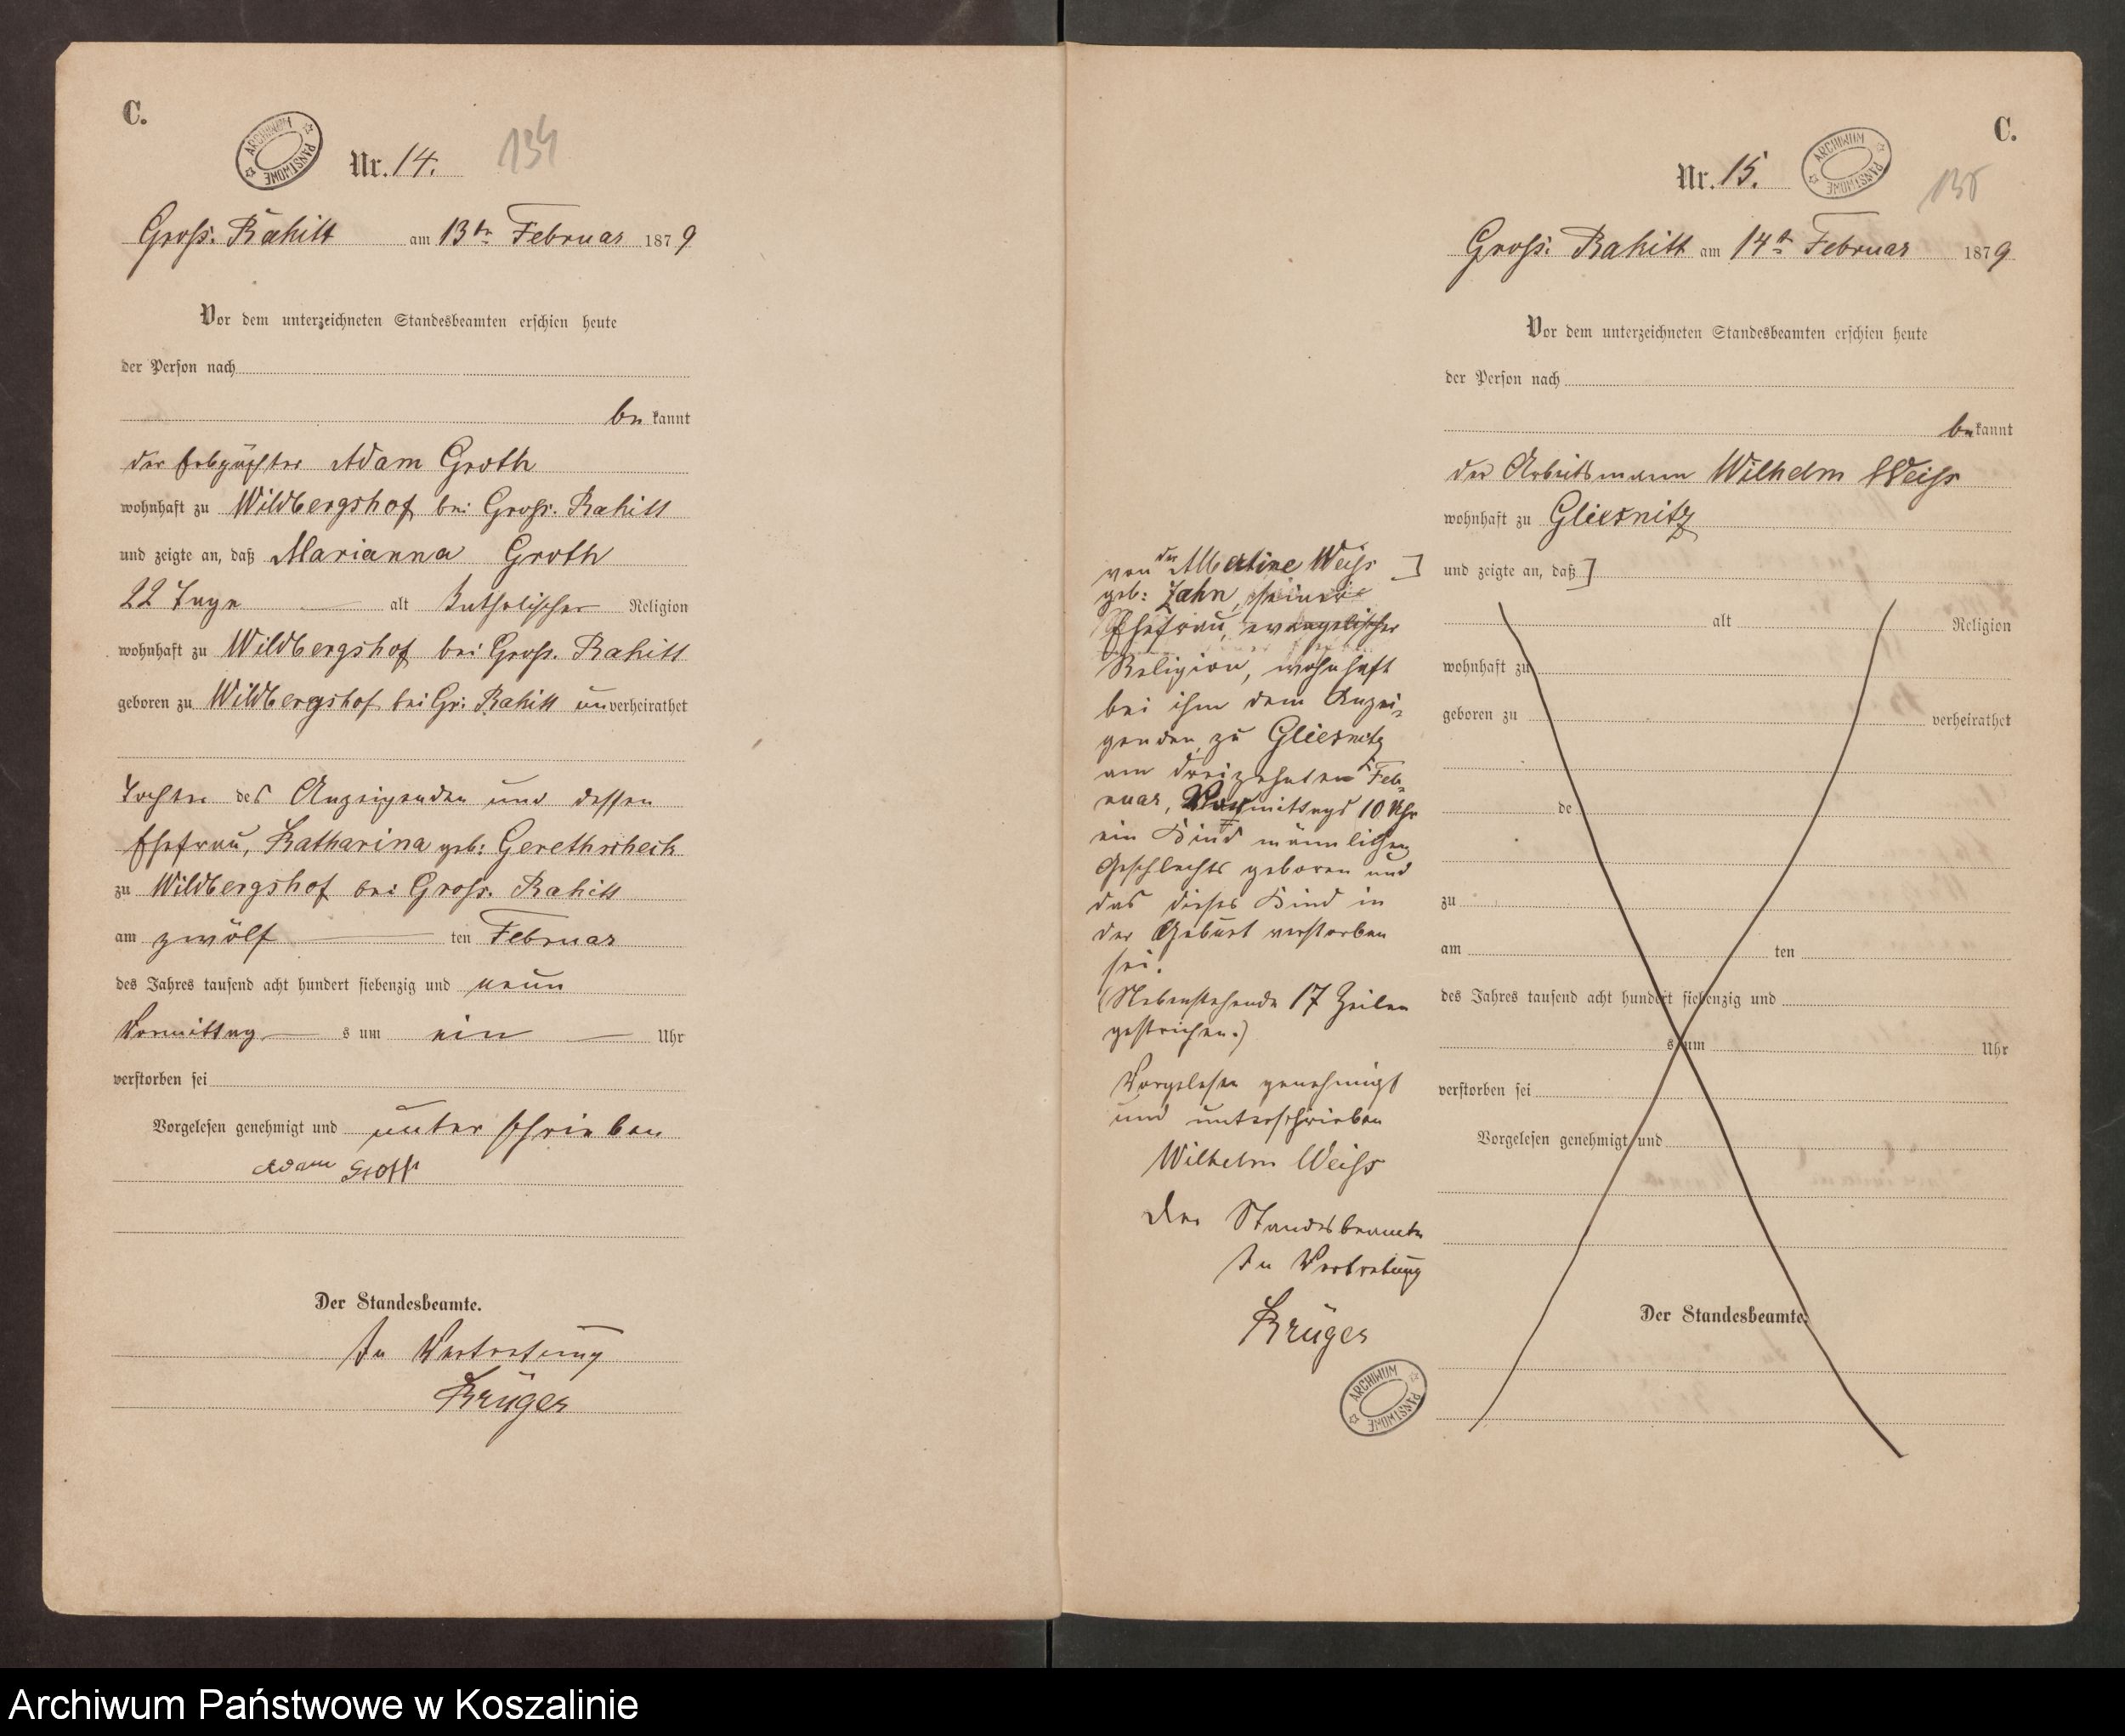 C.
ARCHIWUM PAŃSTWOWE
Nr. 14.
134
Gross. Rakitt am 13ten Februar 1879
Vor dem unterzeichneten Standesbeamten erschien heute
der Person nach
be kannt
der Erbpächter Adam Groth
wohnhaft zu Wildbergshof bei Gross. Rakitt
und zeigte an, daß Marianna Groth
22 Tage — alt katholischer Religion
wohnhaft zu Wildbergshof bei Gross. Rakitt
geboren zu Wildbergshof bei Gr: Rakitt un verheirathet
Tochter des Anzeigenden und dessen
Ehefrau, Katharina geb:
zu Wildbergshof bei Gross. Rakitt
am zwölf — ten Februar
des Jahres tausend acht hundert siebenzig und neun
Vormittag — s um ein — Uhr
verstorben sei
Vorgelesen genehmigt und unterschrieben
Adam Groth
Der Standesbeamte.
In Vertretung
Krüger
C.
Nr. 15.
ARCHIWUM PAŃSTWOWE
135
Gross: Rakitt am 14ten Februar 1879
Vor dem unterzeichneten Standesbeamten erschien heute
der Person nach
be kannt
der Arbeitsmann Wilhelm Weiss
wohnhaft zu Gliesnitz
und zeigte an, daß ]
alt Religion
wohnhaft zu
geboren zu verheirathet
de
zu
am ten
des Jahres tausend acht hundert siebenzig und
s um Uhr
verstorben sei
Vorgelesen genehmigt und
Der Standesbeamte.
von der Albertine Weiss ]
geb: Zahn, seiner
Ehefrau, evangelischer
Religion, wohnhaft
bei ihm dem Anzei-
genden zu Gliesnitz
am dreizehnten Feb-
ruar, mittags 10 Uhr
ein Kind männlichen
Geschlechts geboren und
das dieses Kind in
der Geburt verstorben
sei.
(Nebenstehende 17 Zeilen
gestrichen.)
Vorgelesen genehmigt
und unterschrieben
Wilhelm Weiss
Der Standesbeamte
In Vertretung
Krüger
ARCHIWUM PAŃSTWOWE
Archiwum Państwowe w Koszalinie